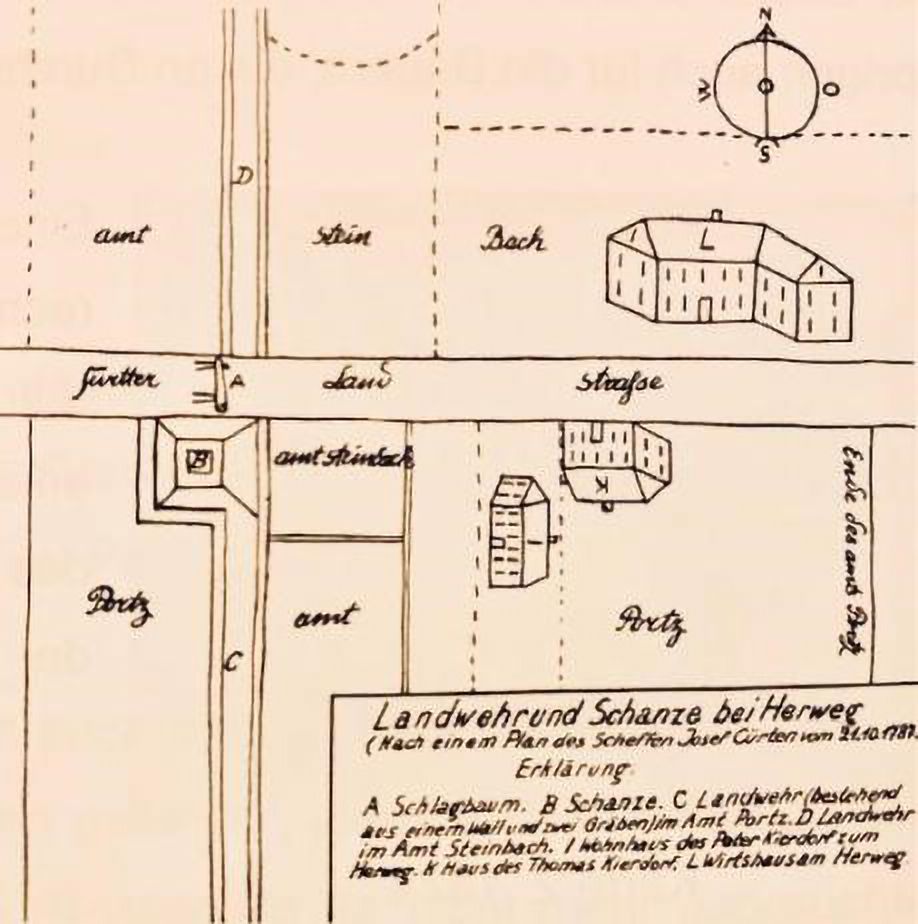 N
W O
S
D
amt stein Bach
L
fürtter A Land Straſse
B amtsteinbach
K
I
Ende des amt Portz
Portz amt Portz
C
Landwehr und Schanze bei Herweg
(Nach einem Plan des Scheffen Josef Cürten vom 21.10.1787.
Erklärung.
A Schlagbaum. B Schanze. C Landwehr (bestehend
aus einem Wall und zwei Gräben) im Amt Portz. D Landwehr
im Amt Steinbach. I Wohnhaus des Peter Kierdorf zum
Herweg. K Haus des Thomas Kierdorf. L Wirtshaus am Herweg.